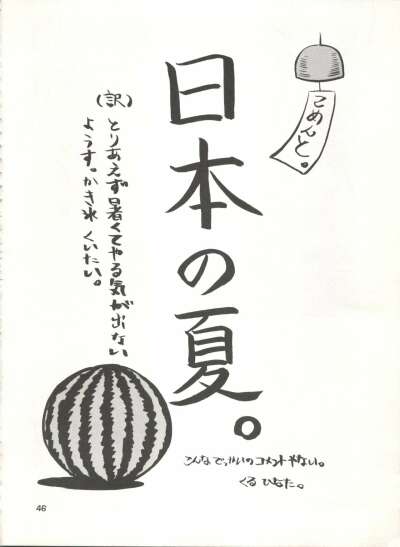 こめんと。
日本の夏。
(訳)とりあえず暑くてやる気が出ない
ようす。かき氷くいたい。
こんなでっかいのコメントやない。
くるひなた。
46